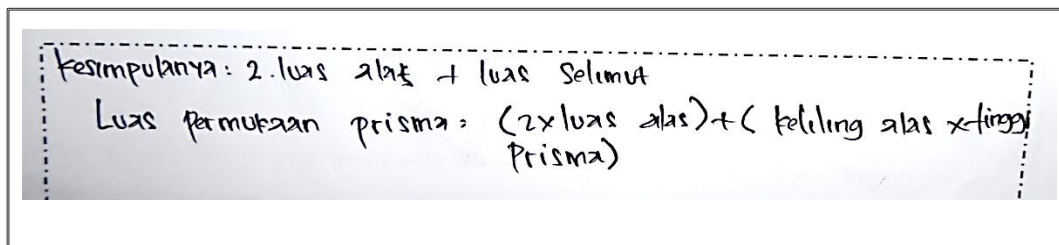 Kesimpulanya: 2. luas alas + luas Selimut
Luas Permukaan prisma = (2x luas alas) + ( keliling alas x tinggi
Prisma)